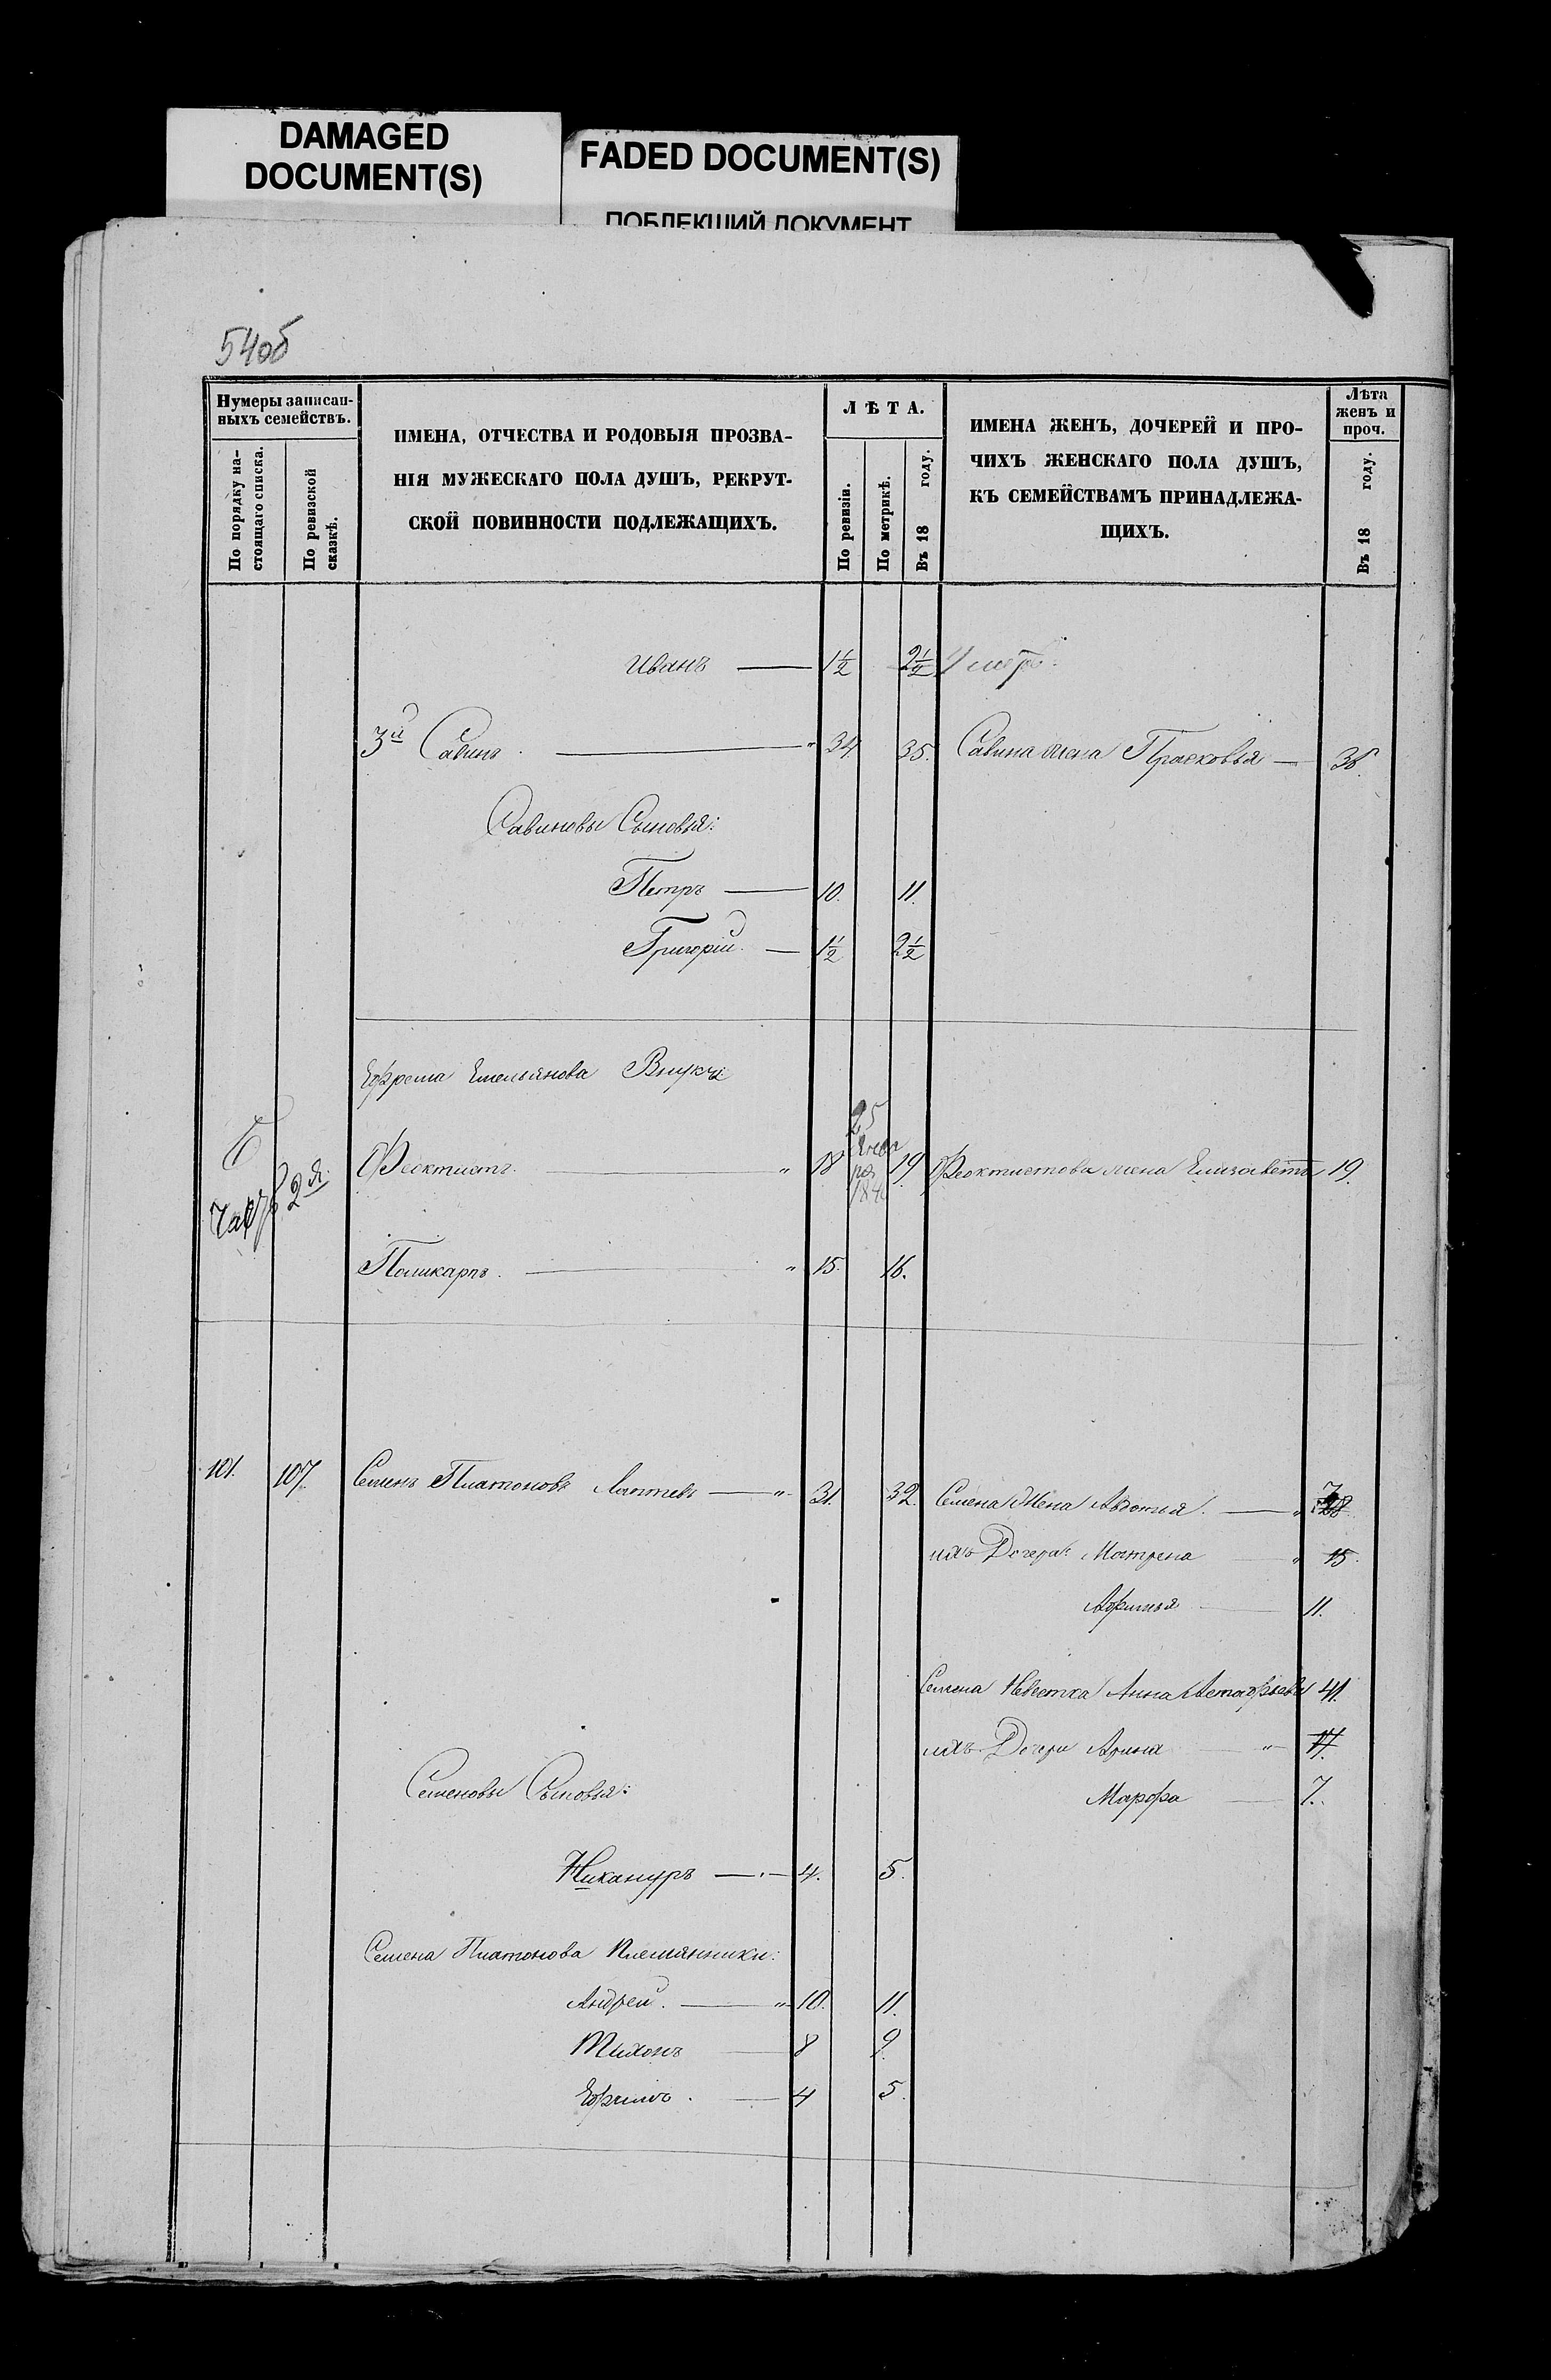 DAMAGED
DOCUMENT(S)
FADED DOCUMENT(S)
ПОБЛЕКШИЙ ДОКУМЕНТ
54об
Нумеры записан-
ныхъ семействъ.
По порядку на-
стоящаго списка.
По ревизской
сказкѣ.
ИМЕНА, ОТЧЕСТВА И РОДОВЫЯ ПРОЗВА-
НІЯ МУЖЕСКАГО ПОЛА ДУШЪ, РЕКРУТ-
СКОЙ ПОВИННОСТИ ПОДЛЕЖАЩИХЪ.
ЛѢТА.
По ревизіи.
По метрикѣ.
Въ 18 году.
ИМЕНА ЖЕНЪ, ДОЧЕРЕЙ И ПРО-
ЧИХЪ ЖЕНСКАГО ПОЛА ДУШЪ,
КЪ СЕМЕЙСТВАМЪ ПРИНАДЛЕЖА-
ЩИХЪ.
Лѣта
женъ и
проч.
Въ 18 году.
Иванъ — 1½ 2½
3й Савинъ. — " 34. 35. Савина жена Прасковья — 36.
Савиновы Сыновья:
Петръ — 10. 11.
Григорій. — 1½ 2½
Ефрема Емельянова Внуки
Часть 2я.
Феоктистъ. — " 18 25 Янва
ря 184 19 Феоктистова жена Елизавета 19.
Поликарпъ. — " 15. 16.
101. 107. Семенъ Платоновъ Лаптевъ — " 31. 32. Семена Жена Авдотья. — " 28
ихъ Дочери: Матрена — " 15.
Афимья — 11.
Семена Невестка Анна Астафьева 41.
ихъ Дочери Арина — " 17.
Семеновы Сыновья:
Марфа — 7.
Никануръ — 4. 5.
Семена Платонова Племянники:
Андрей. — " 10. 11.
Тихонъ — 8 9.
Ефимъ. — 4 5.